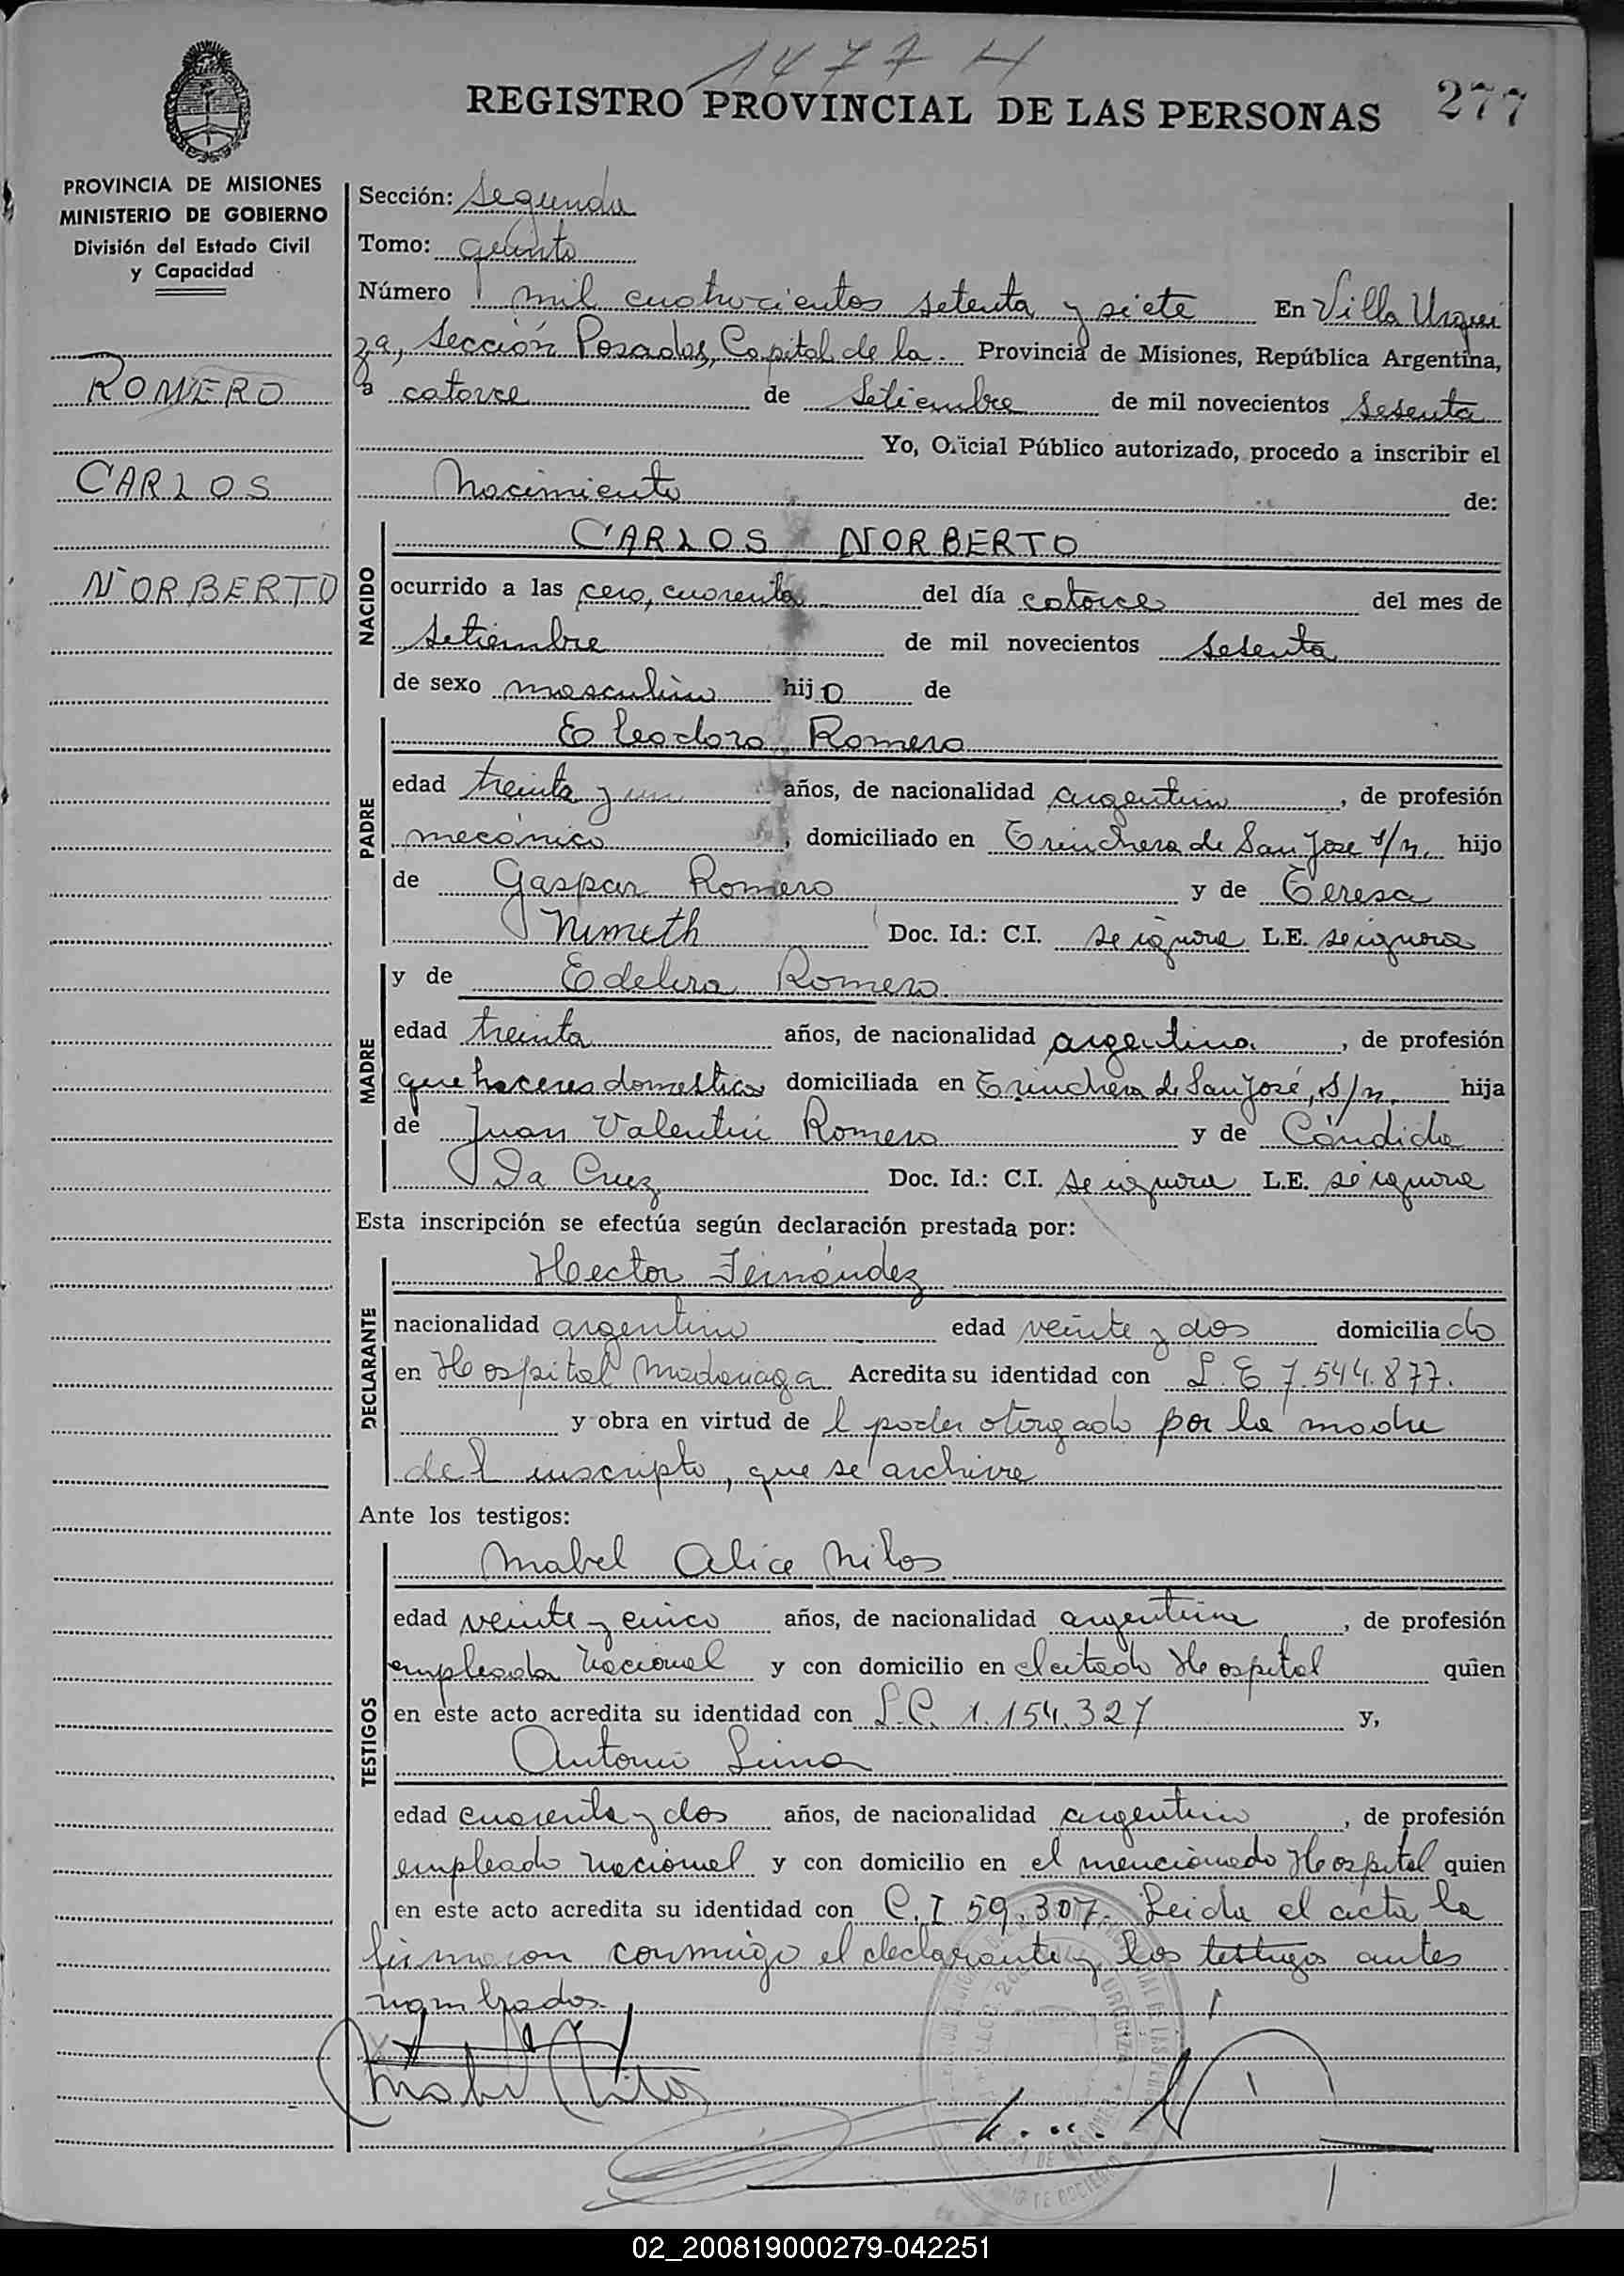 1477 H
REGISTRO PROVINCIAL DE LAS PERSONAS 277
PROVINCIA DE MISIONES
MINISTERIO DE GOBIERNO
División del Estado Civil
y Capacidad
ROMERO
CARLOS
NORBERTO
Sección: Segunda
Tomo: quinto
Número mil cuatrocientos setenta y siete En Villa Urqui
za, Sección Posadas, Capital de la Provincia de Misiones, República Argentina,
a catorce de Setiembre de mil novecientos sesenta
Yo, Oficial Público autorizado, procedo a inscribir el
Nacimiento de:
NACIDO
CARLOS NORBERTO
ocurrido a las cero, cuarenta del día catorce del mes de
Setiembre de mil novecientos sesenta
de sexo masculino hijo de
PADRE
Eleodoro Romero
edad treinta y un años, de nacionalidad argentino, de profesión
mecánico, domiciliado en Trinchera de San Jose s/n. hijo
de Gaspar Romero y de Teresa
Nimeth Doc. Id.: C.I. se ignora L.E. se ignora
MADRE
y de Edelira Romero
edad treinta años, de nacionalidad argentina, de profesión
que haceres domesticos domiciliada en Trinchera de San José, s/n. hija
de Juan Valentin Romero y de Cándida
Da Cruz Doc. Id.: C.I. se ignora L.E. se ignora
Esta inscripción se efectúa según declaración prestada por:
DECLARANTE
Hector Fernández
nacionalidad argentino edad veinte y dos domiciliado
en Hospital Madariaga Acredita su identidad con L.E 7.544.877.
y obra en virtud del poder otorgado por la madre
del inscripto, que se archiva
Ante los testigos:
TESTIGOS
Mabel Alice Nilos
edad veinte y cinco años, de nacionalidad argentina, de profesión
empleada nacional y con domicilio en el citado Hospital quien
en este acto acredita su identidad con L.C. 1.154.327 y,
Antonio Luna
edad cuarenta y dos años, de nacionalidad argentino, de profesión
empleado nacional y con domicilio en el mencionado Hospital quien
en este acto acredita su identidad con C.I 59.307. Leida el acta la
firmaron conmigo el declarante y los testigos antes
nombrados.
02_200819000279-042251